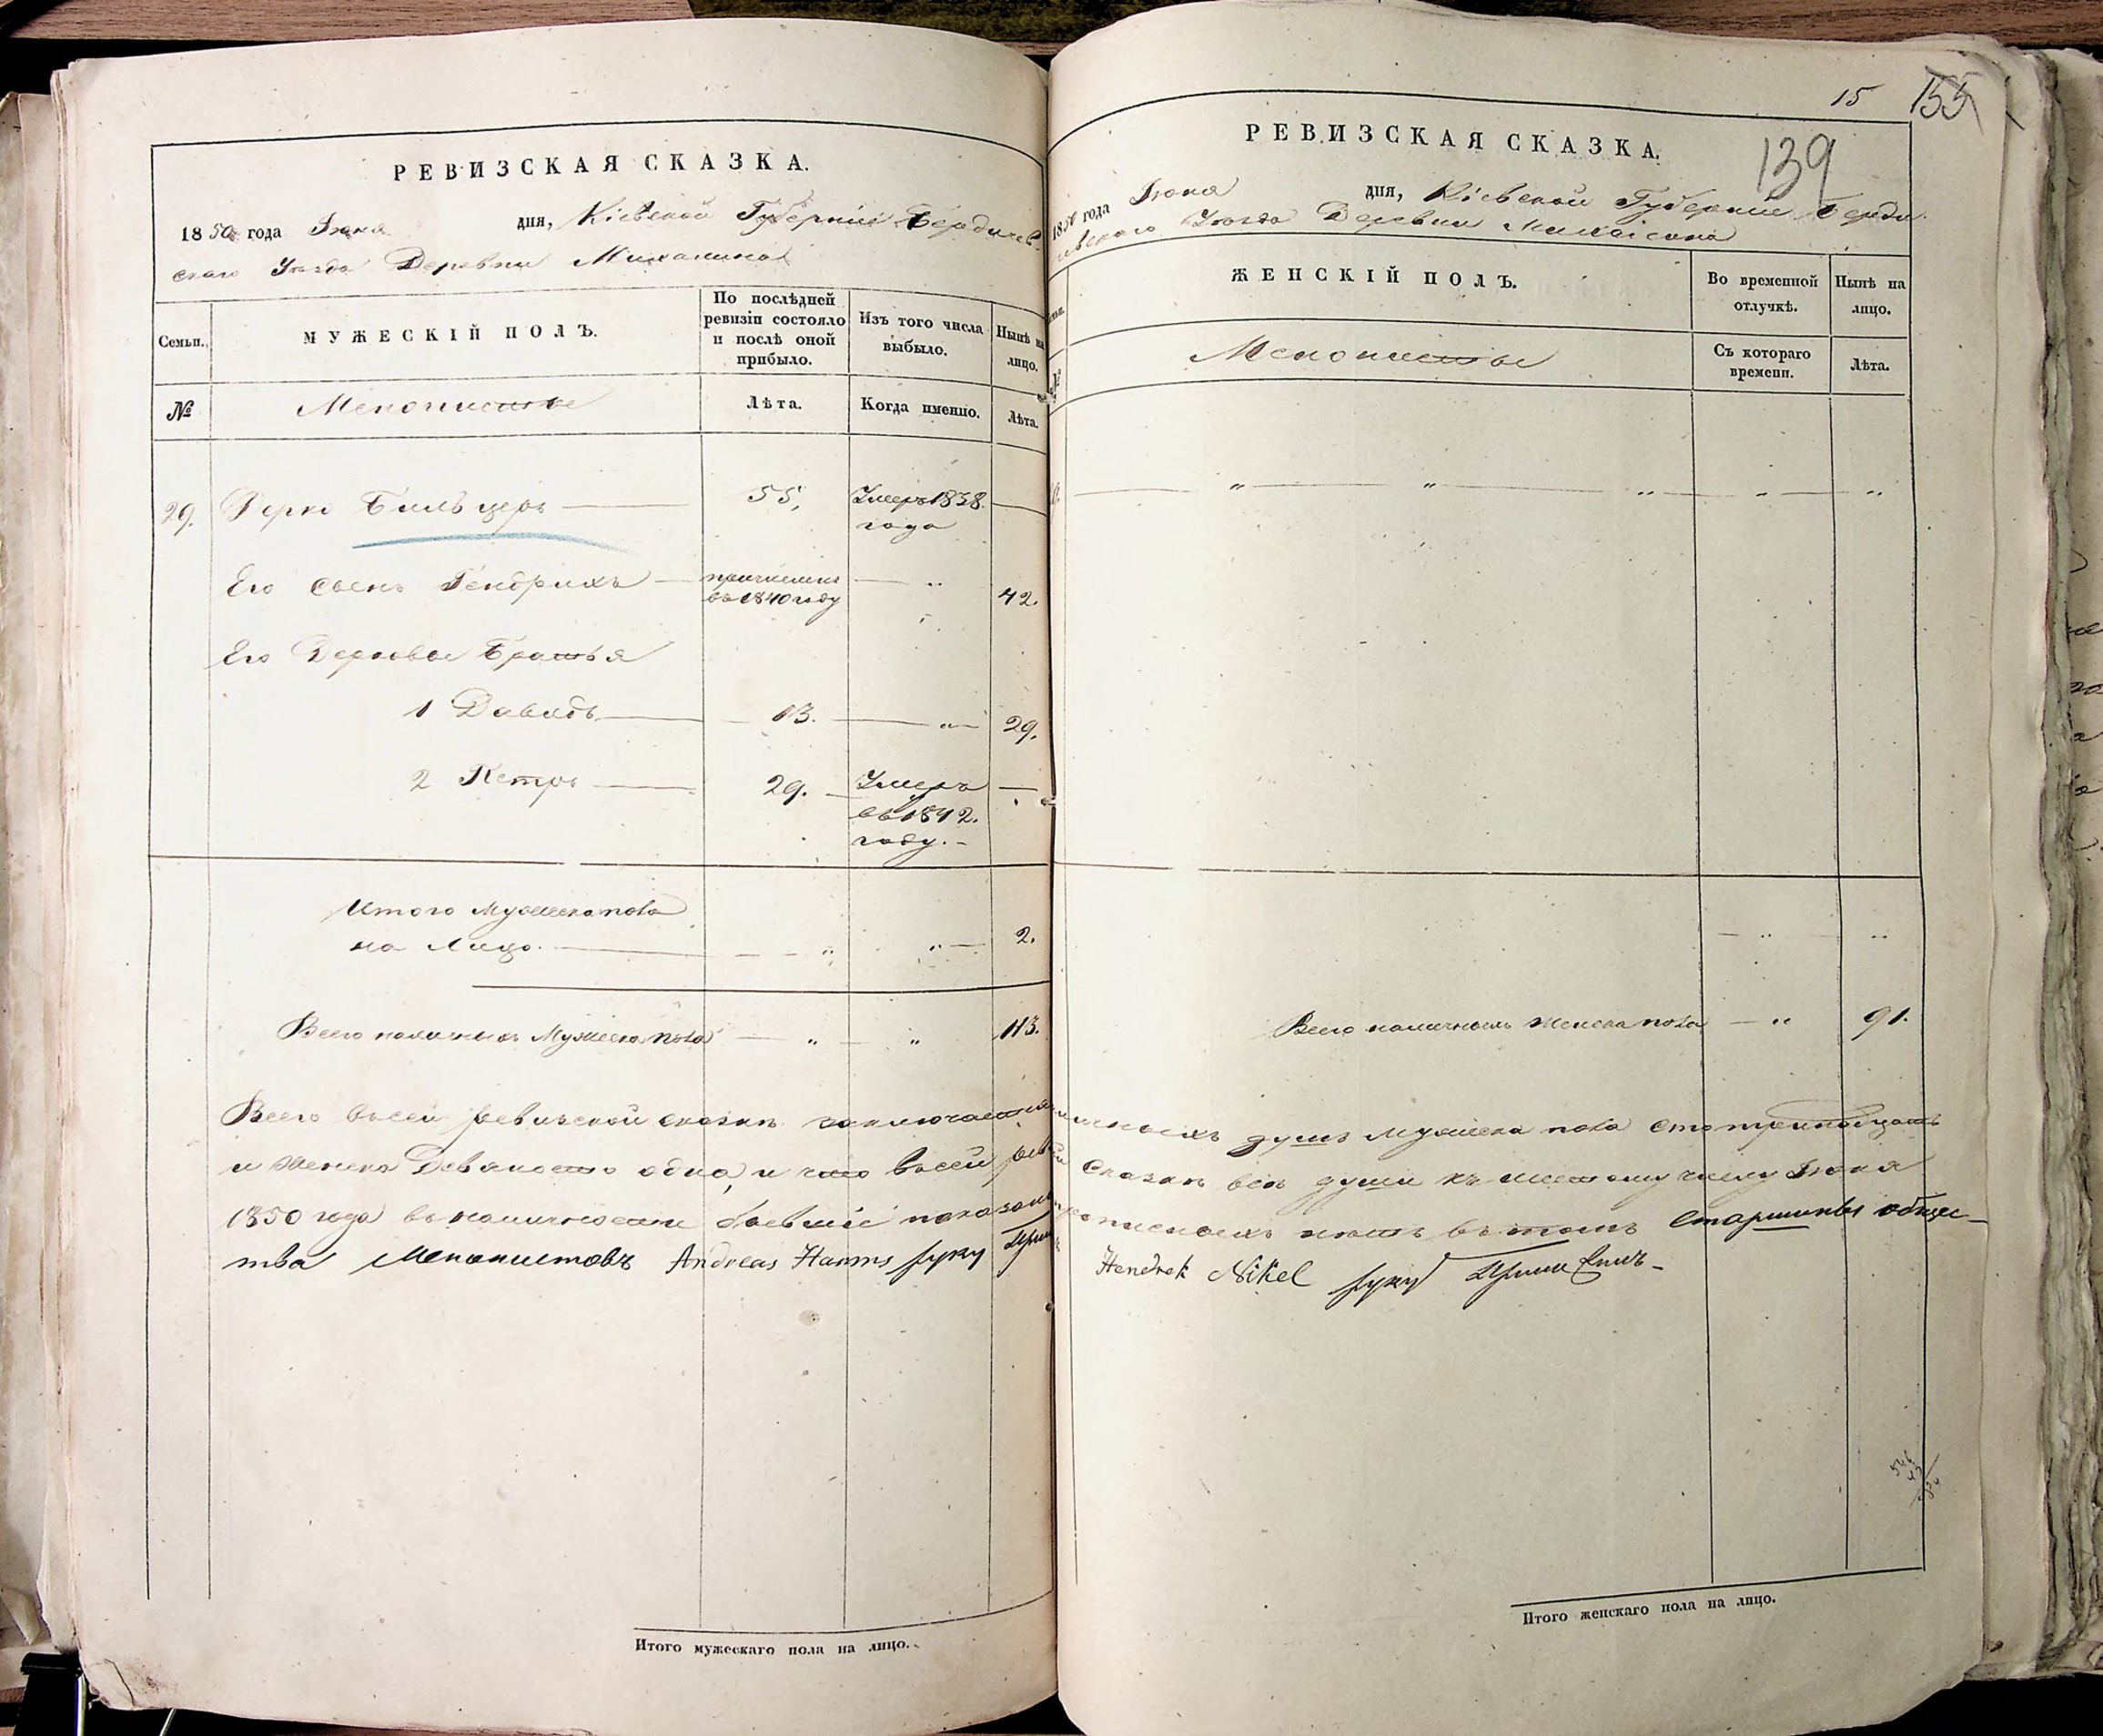 РЕВИЗСКАЯ СКАЗКА.
1850 года Іюня дня, Кіевской Губерніи Бердичев-
скаго Уѣзда Деревни Михалина
Семьи.
МУЖЕСКІЙ ПОЛЪ.
По послѣдней ревизіи состояло и послѣ оной прибыло.
Изъ того числа выбыло.
Нынѣ на лицо.
№
Менонисты
Лѣта.
Когда именно.
Лѣта.
29. Дерко Бильцеръ 55, Умеръ 1838.
года
Его Сынъ Гендрихъ причисленъ
въ 1840 году 42.
Его Дерковы Братья
1 Давидъ 13. 29.
2 Петръ 29. Умеръ
въ 1842.
году.
Итого Мужеска пола
на Лицо. 2.
Всего наличныхъ Мужеска пола 113.
Всего въ сей ревизской сказкѣ заключается
и Женска Девяносто одна, и что въ сей
1850 года въ наличности бывшіе
тва Менонистовъ Andreas Harms руку
Итого мужескаго пола на лицо.
15 155
139
РЕВИЗСКАЯ СКАЗКА.
1850 года Іюня дня, Кіевской Губерніи Берди-
Уѣзда Деревни
ЖЕНСКІЙ ПОЛЪ.
Во временной отлучкѣ.
Нынѣ на лицо.
№
Менонисты
Съ котораго времени.
Лѣта.
Всего наличныхъ женска пола 91.
душъ мужеска пола сто тринадцать
Сказкѣ всѣ души къ шестому числу Іюня
нѣтъ въ томъ Старшины общес-
Hendrek Nikel руку
Итого женскаго пола на лицо.